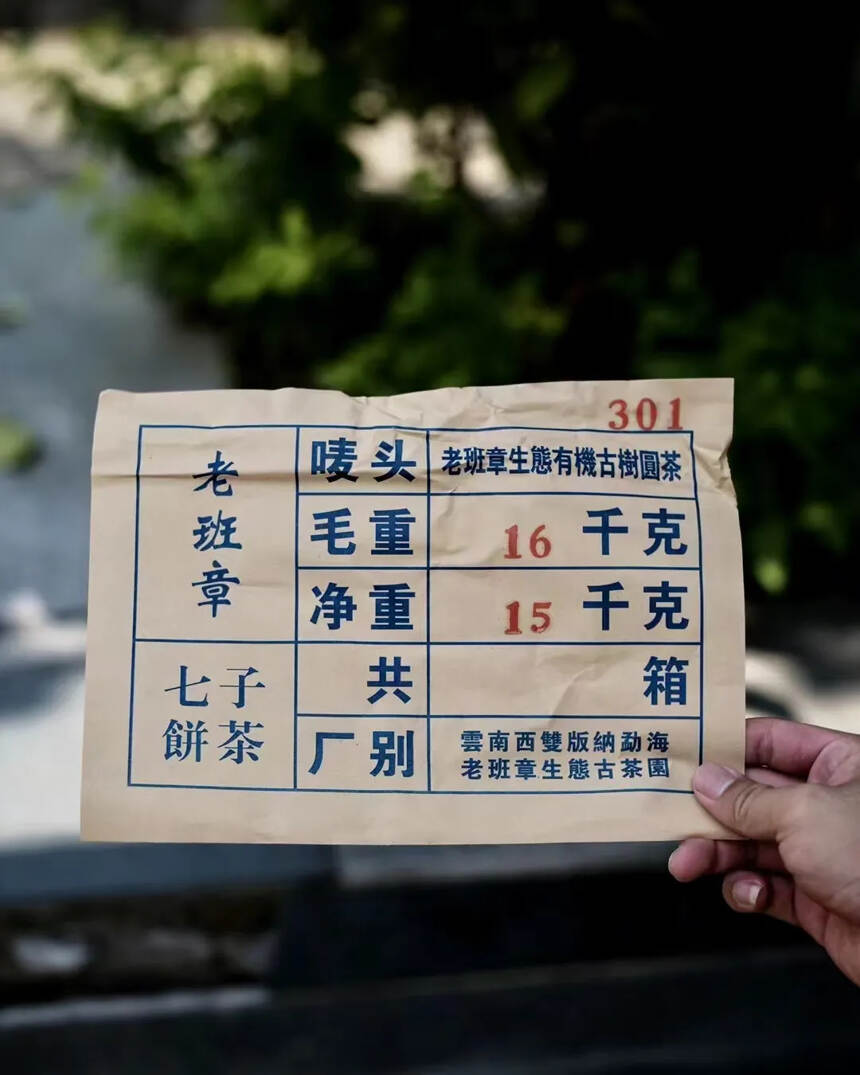 301
老班章
七子
餅茶
唛头 老班章生態有機古樹圓茶
毛重 16 千克
净重 15 千克
共 箱
厂别 雲南西雙版納勐海
老班章生態古茶園